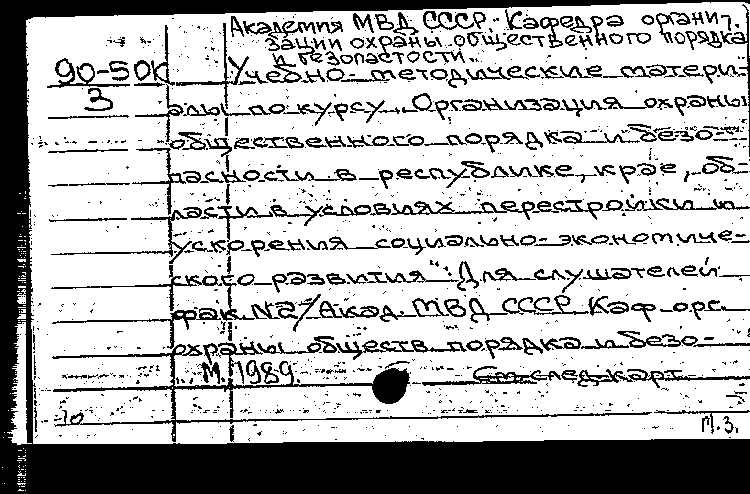 Академия МВД СССР.- Кафедра органи-
зации охраны общественного порядка
и безопастости.
90-50К Учебно-методические матери-
3 алы по курсу „Организация охраны
общественного порядка и безо-
пасности в республике, крае, об-
ласти в условиях перестройки и
ускорения социально-экономиче-
ского развития“: Для слушателей
фак. N2/Акад. МВД СССР. Каф. орг.
охраны обществ. порядка и безо-
М. 1989. См след. карт
10
М.З.